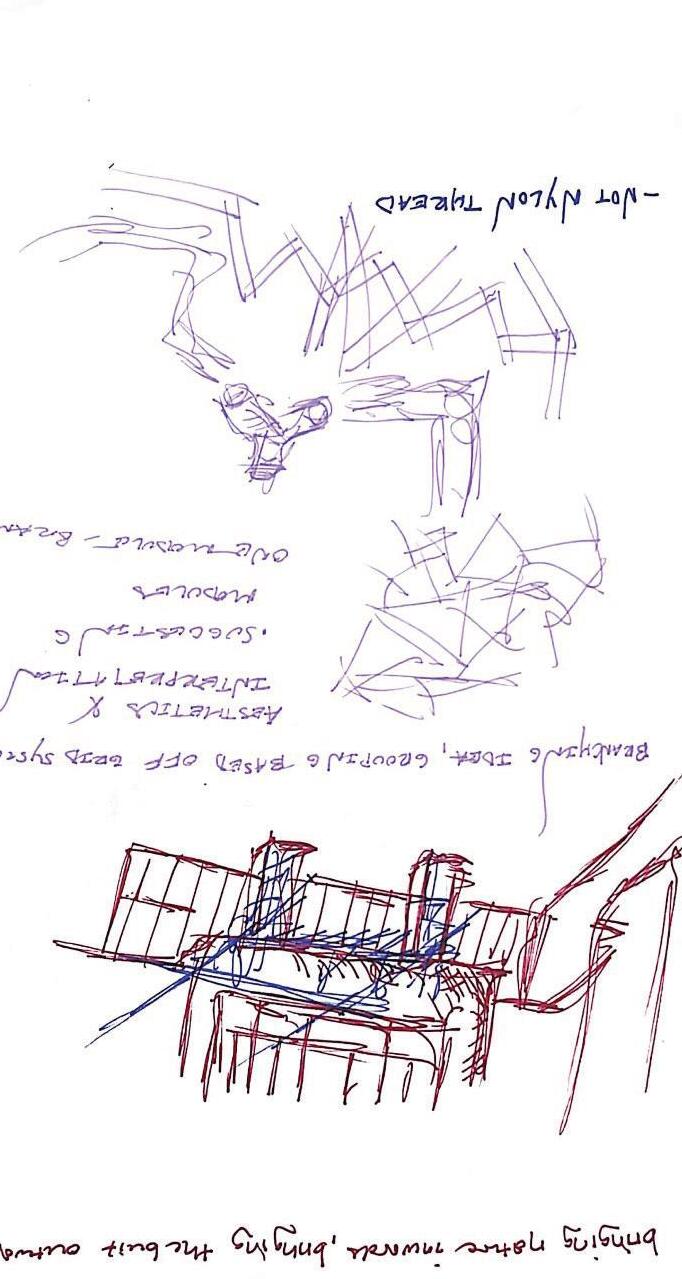 bringing nature inwards, bringing the built outwa
BRANCHING IDEA, GROUPING BASED OFF GRID SYSTE
AESTHETICS &
INTERPRETATION
. SUGGESTING
MODULES
ONE MODULE - BRAN
- NOT NYLON THREAD